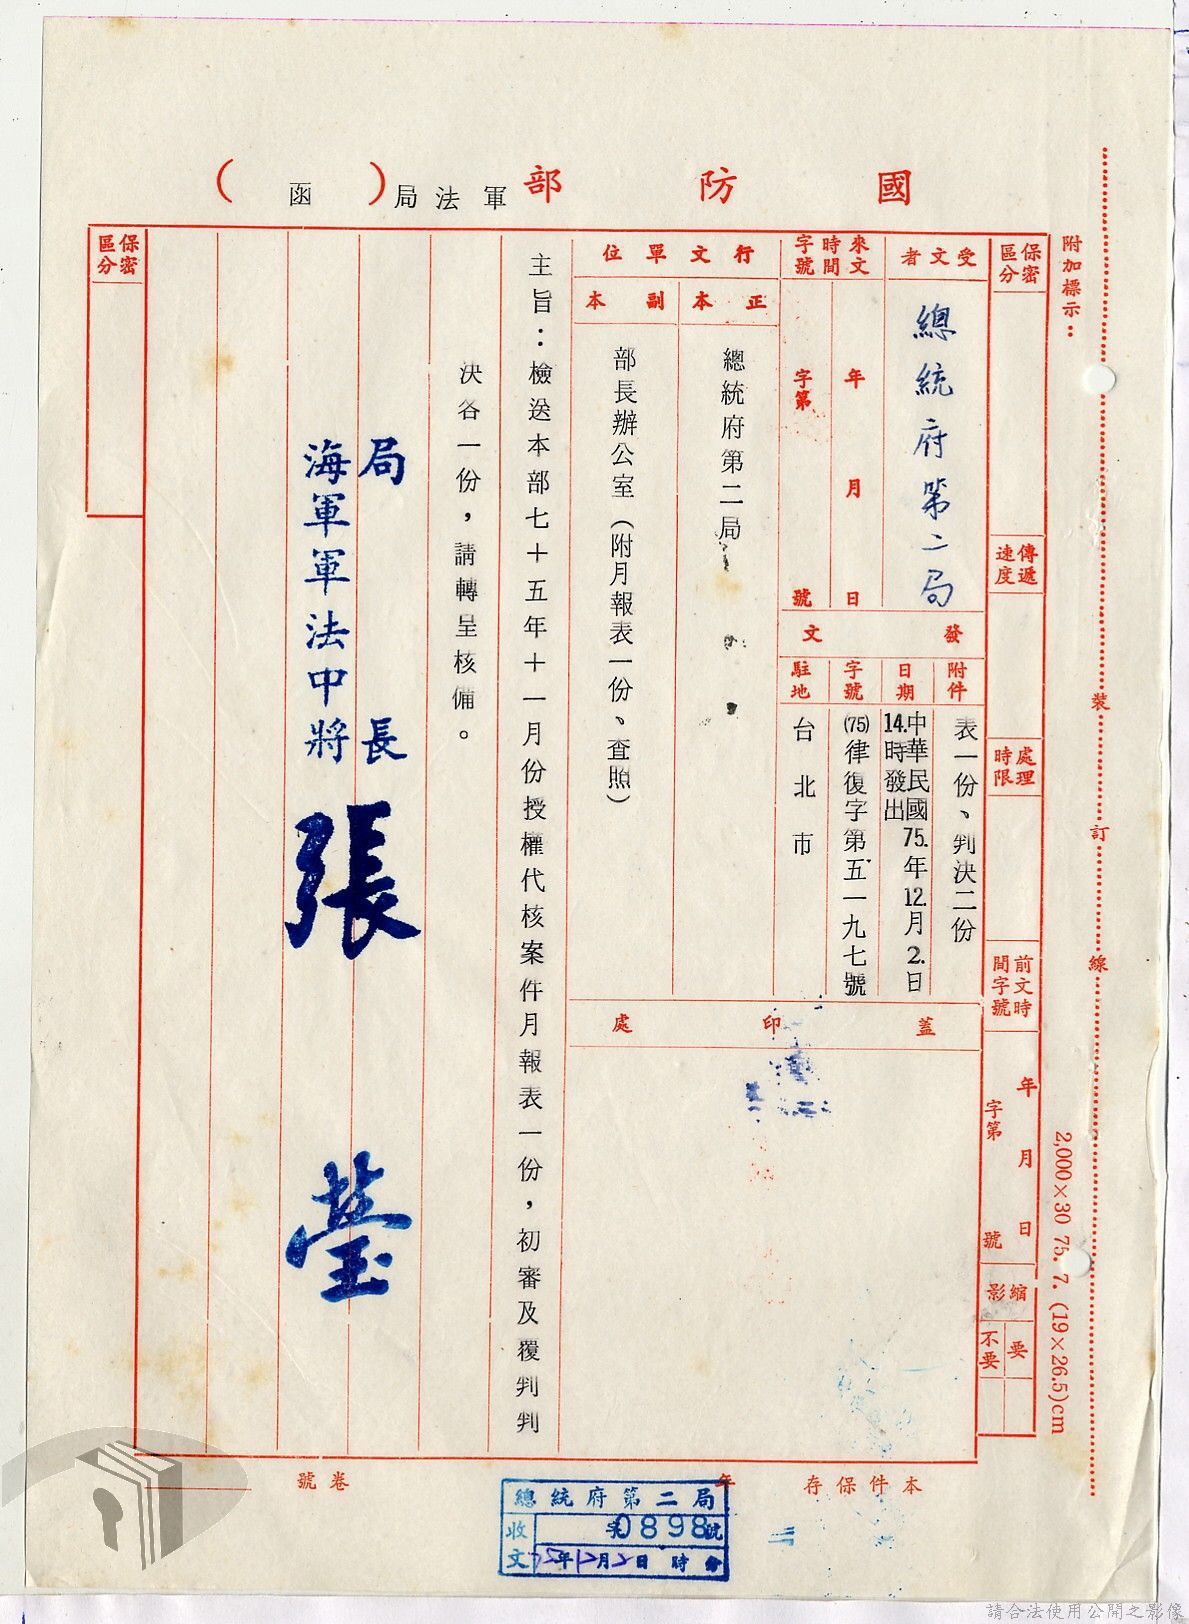 國防部軍法局（函）
附加標示：
保密區分
傳遞速度
處理時限
前文時間字號
年月日
字第號
縮影
要
不要
受文者
總統府第二局
來文
時間
年月日
字號
字第號
發文
附件
表一份、判決二份
日期
中華民國75.年12.月2.日
14.時發出
字號
(75)律復字第五一九七號
駐地
台北市
行文單位
正本
總統府第二局
副本
部長辦公室（附月報表一份、查照）
蓋印處
主旨：檢送本部七十五年十一月份授權代核案件月報表一份，初審及覆判判
決各一份，請轉呈核備。
局長
海軍軍法中將
張蓥
保密區分
裝訂線
2,000×30 75. 7. (19×26.5)cm
本件保存年
卷號
總統府第二局
收文
字0898號
75年12月2日時分
請合法使用公開之影像